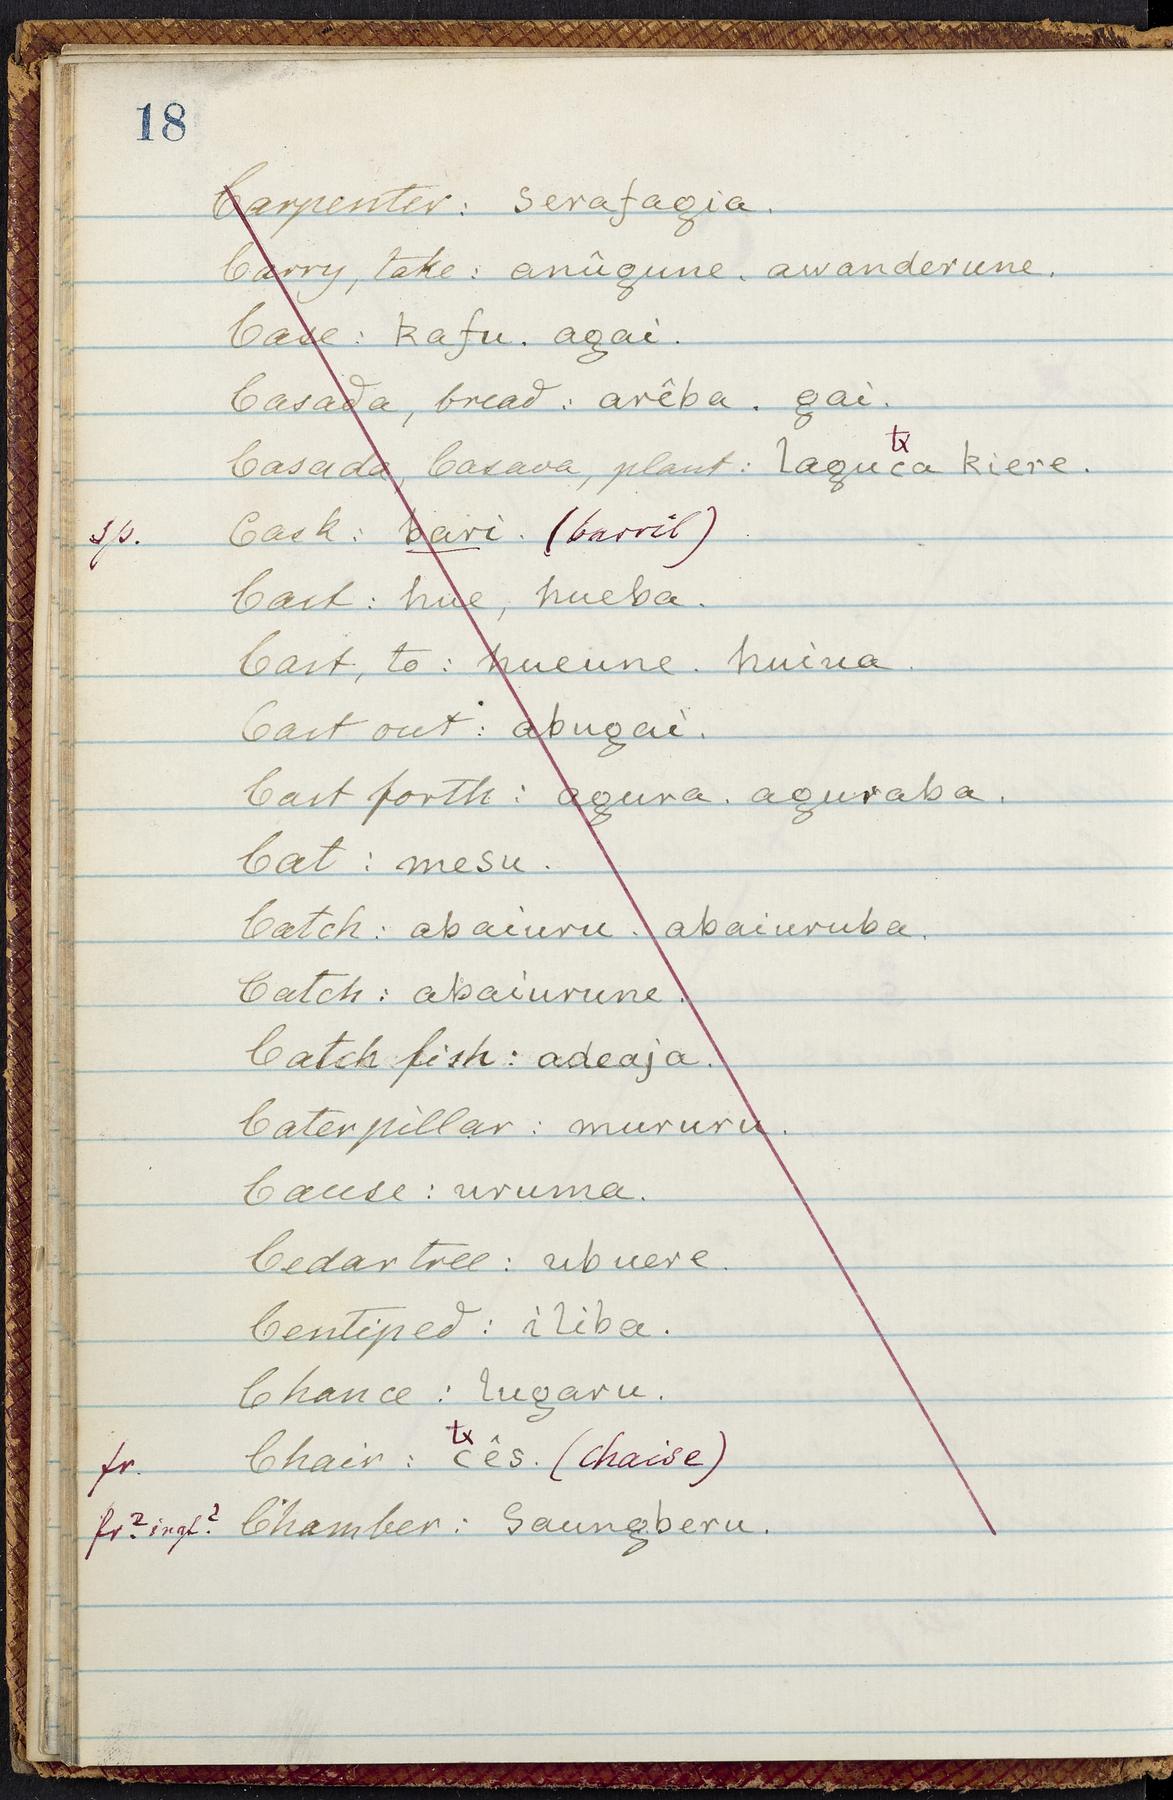 18
Carpenter: serafagia.
Carry, take: anûgune. awanderune.
Case: kafu. agai.
Casada, bread: arêba. gai.
tx
Casada, Casava, plant: laguca kiere.
sp. Cask: bari. (barril)
Cast: hue, hueba.
Cast, to: hueune. huiua.
Cast out: abugai.
Cast forth: agura. aguraba.
Cat: mesu.
Catch: abaiuru. abaiuruba.
Catch: abaiurune.
Catch fish: adeaja.
Caterpillar: mururu.
Cause: uruma.
Cedar tree: ubuere.
Centiped: iliba.
Chance: lugaru.
tx
fr. Chair: cês. (chaise)
fr.? ingl.? Chamber: Saungberu.